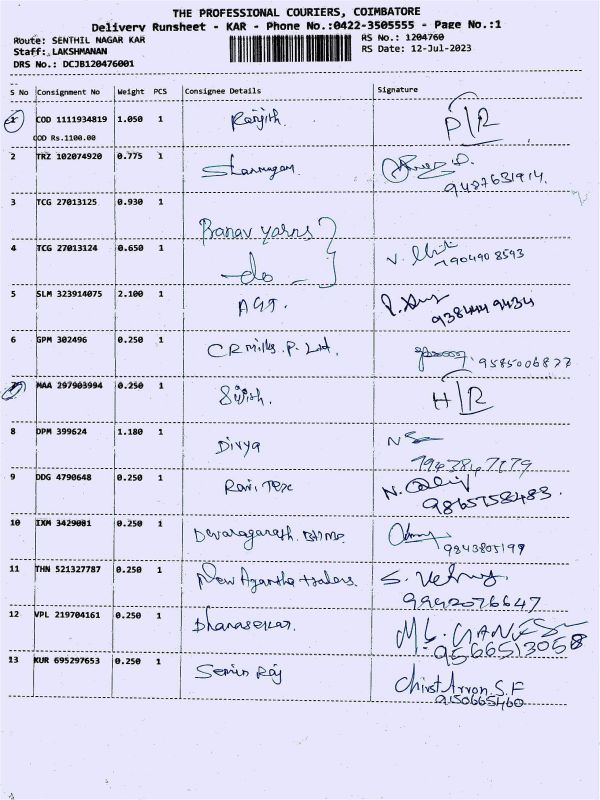 THE PROFESSIONAL COURIERS, COIMBATORE
Delivery Runsheet - KAR - Phone No.:0422-3505555 - Page No.:1
Route: SENTHIL NAGAR KAR
RS No.: 1204760
Staff: LAKSHMANAN
RS Date: 12-Jul-2023
DRS No.: DCJB120476001
S No Consignment No Weight PCS Consignee Details Signature
1 COD 1111934819 1.050 1 Ranjith. P/R
COD Rs.1100.00
2 TRZ 102074920 0.775 1 9487631914.
3 TCG 27013125 0.930 1 Banav yarns
4 TCG 27013124 0.650 1 -do- 7904908593
5 SLM 323914075 2.100 1 9384449434
6 GPM 302496 0.250 1 C R Mills. P. Ltd. 9585006877
7 MAA 297903994 0.250 1 H/R
8 DPM 399624 1.180 1 Divya
9 DDG 4790648 0.250 1 Ravi Tex 9865758483.
10 IXM 3429081 0.250 1 9843805199
11 THN 521327787 0.250 1 New Agantha traders. 9992076647
12 VPL 219704161 0.250 1 Dhanasekar. 9566513058
13 KUR 695297653 0.250 1 Raj 9150665460